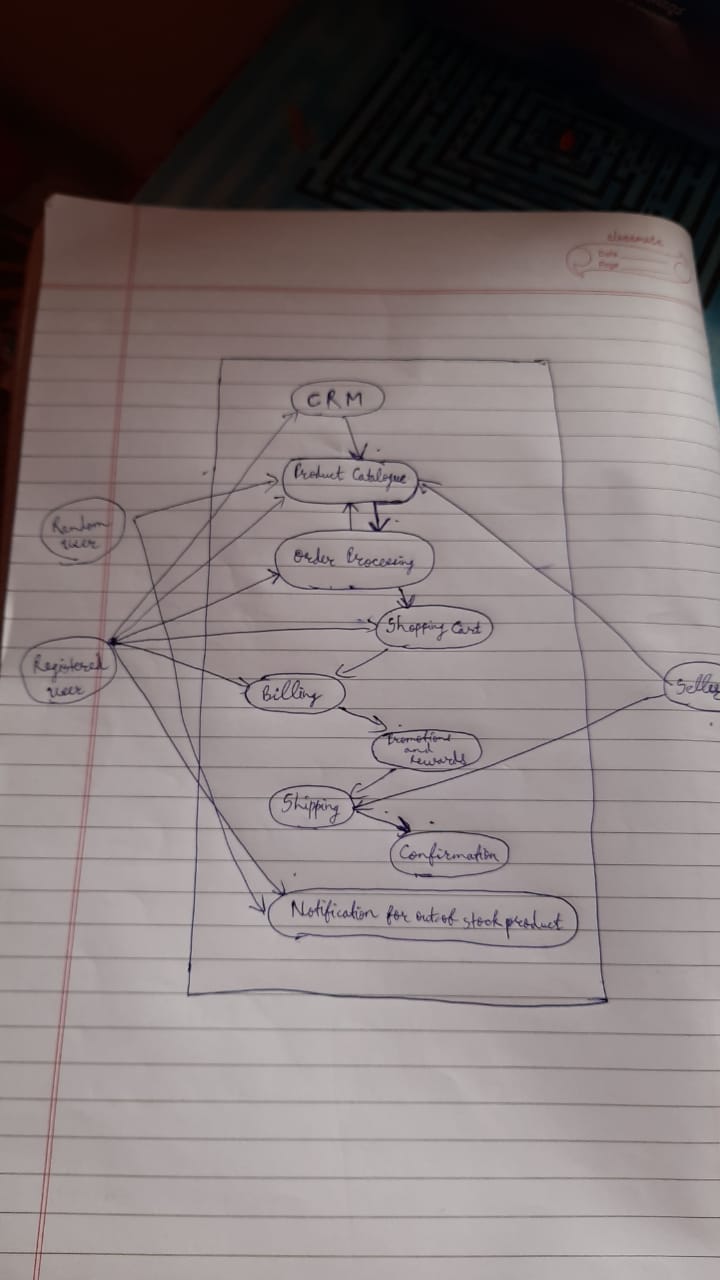 classmate
Date
Page
CRM
Product Catalogue
Random
user
Order Procesing
Shopping Cart
Registered
user
Billing
Promotions
and
rewards
Shipping
Confirmation
Notification for out of stock product